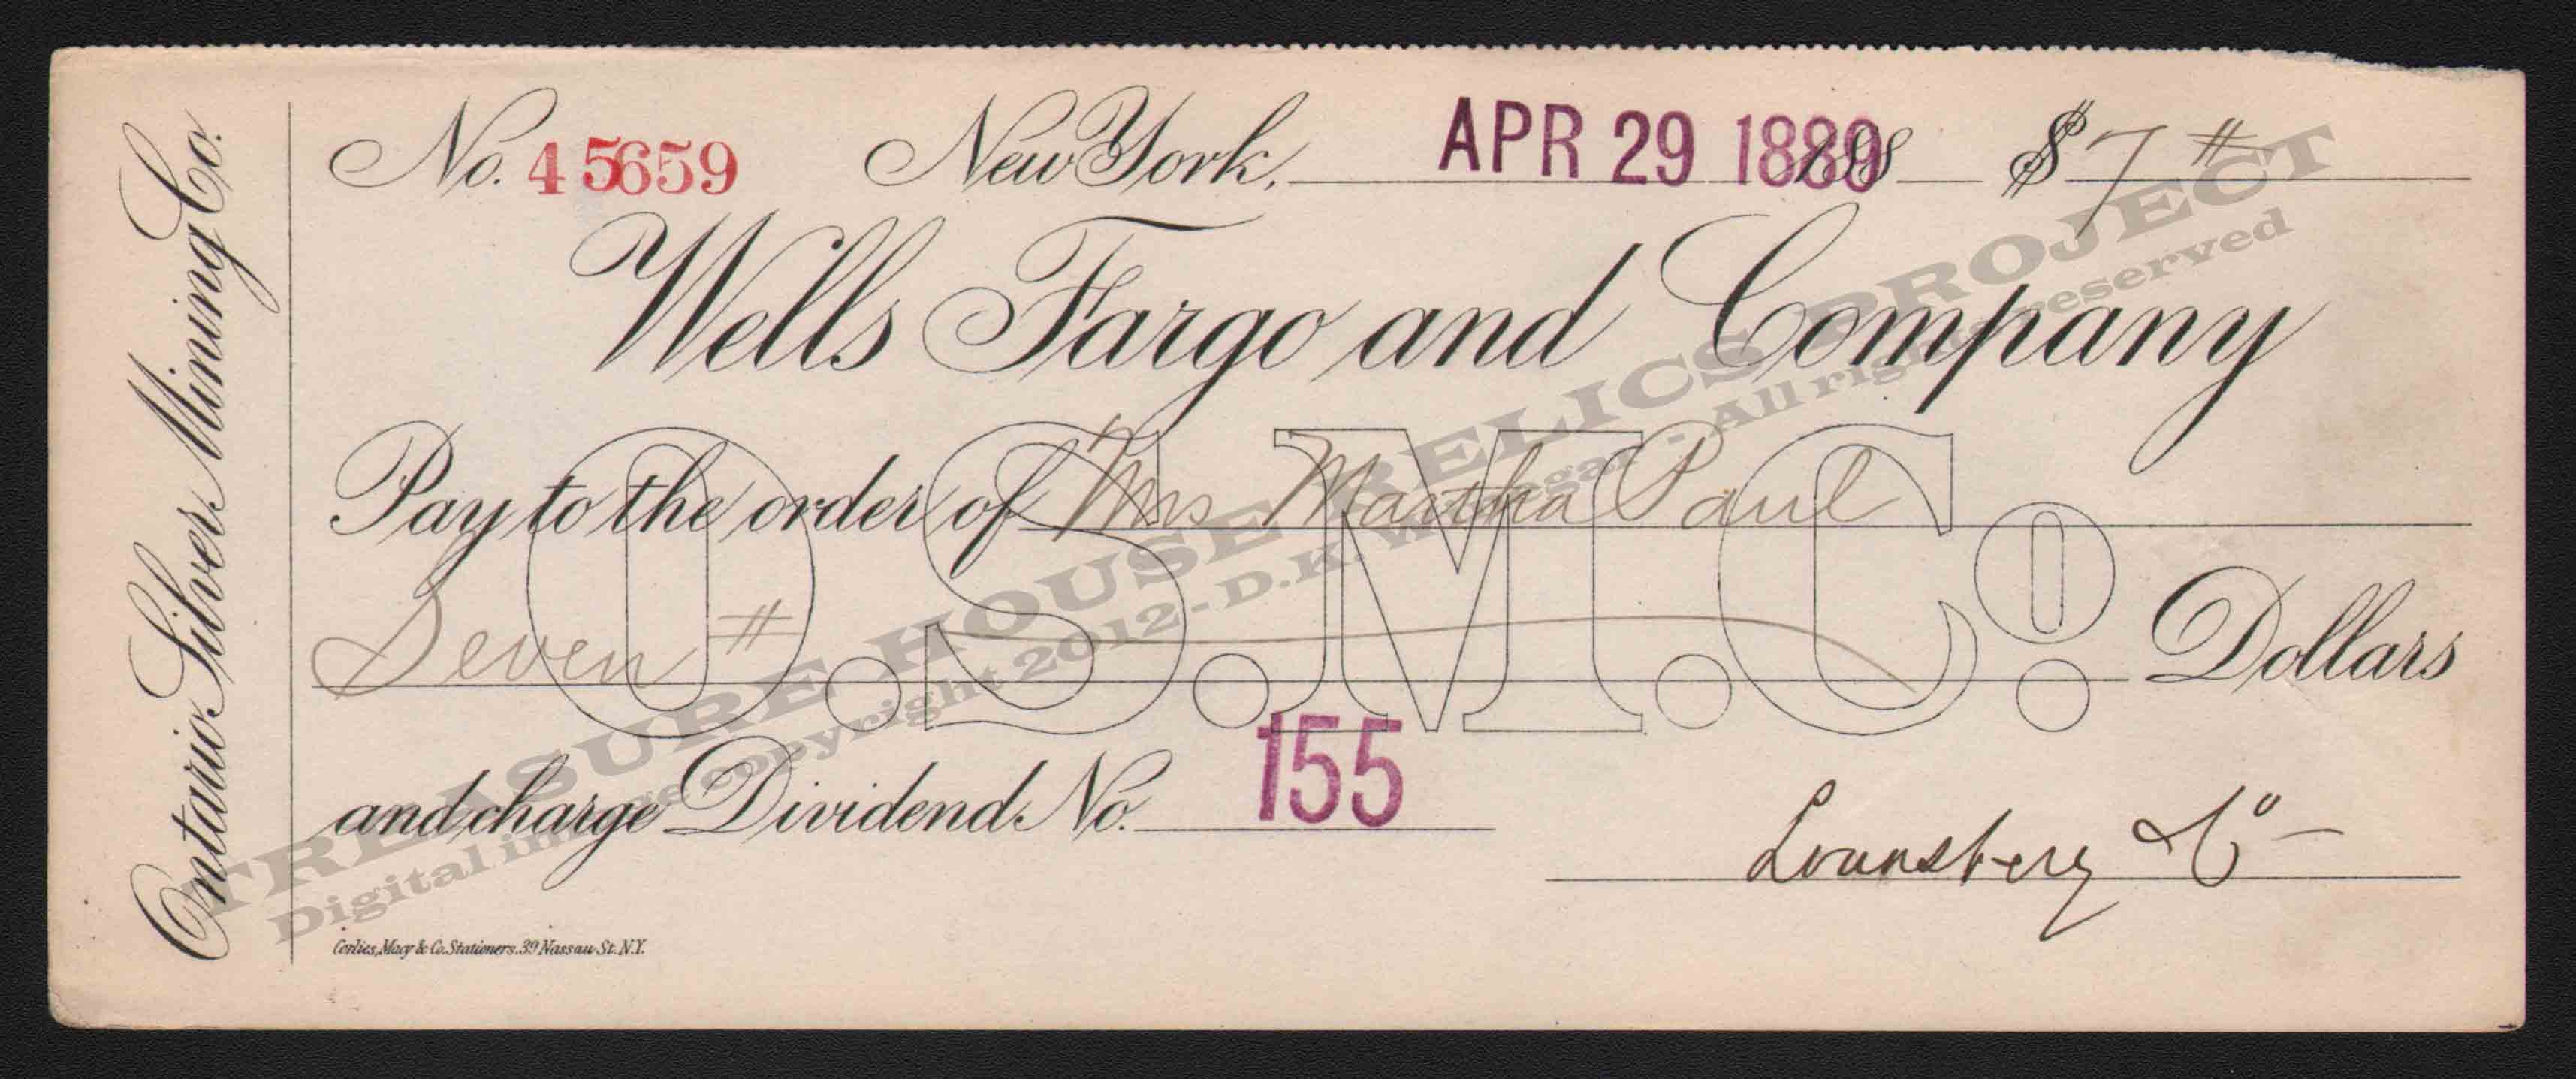 Ontario Silver Mining Co.
No. 45659 New York, APR 29 1889 188 $7 #
Wells Fargo and Company
Pay to the order of Mrs Martha Paul
O.S.M.Co.
Seven # Dollars
and charge Dividend No. 155
Lounsbery & Co
Corlies, Macy & Co. Stationers. 39 Nassau St. N.Y.
TREASURE HOUSE RELICS PROJECT
Digital image copyright 2012 - D.K. - All rights reserved